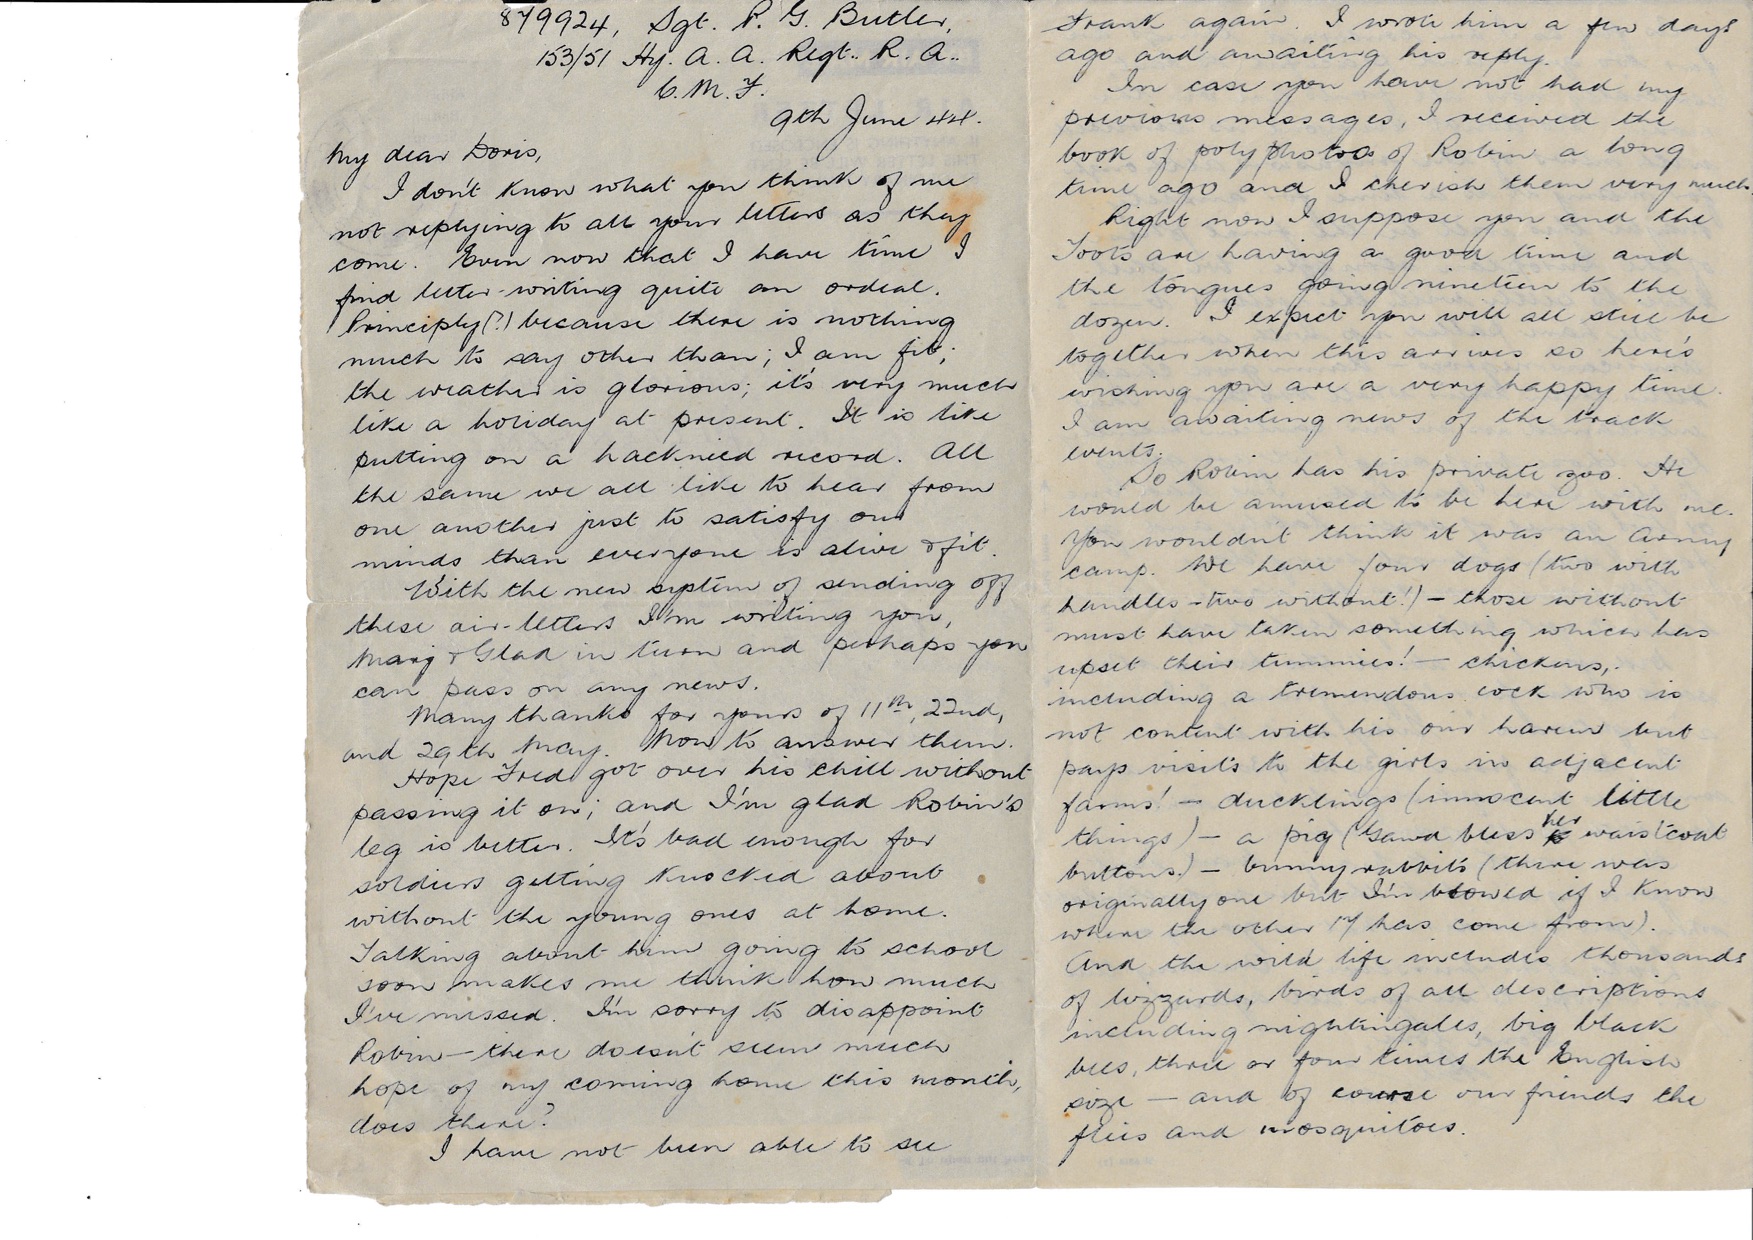 879924, Sgt. P. G. Butler,
153/51 Hy. A. A. Regt.. R. A..
C. M. F.
9th June 44.
My dear Doris,
I don't know what you think of me
not replying to all your letters as they
come. Even now that I have time I
find letter-writing quite an ordeal.
Principly(?) because there is nothing
much to say other than; I am fit;
the weather is glorious; it's very much
like a holiday at present. It is like
putting on a hacknied record. All
the same we all like to hear from
one another just to satisfy our
minds than everyone is alive & fit.
With the new system of sending off
these air-letters I'm writing you,
Marj & Glad in turn and perhaps you
can pass on any news.
Many thanks for yours of 11th, 22nd,
and 29th May. Now to answer them.
Hope Fred got over his chill without
passing it on; and I'm glad Robin's
leg is better. It's bad enough for
soldiers getting knocked about
without the young ones at home.
Talking about him going to school
soon makes me think how much
I've missed. I'm sorry to disappoint
Robin — there doesn't seem much
hope of my coming home this month,
does there?
I have not been able to see
Frank again. I wrote him a few days
ago and awaiting his reply.
In case you have not had my
previous messages, I received the
book of polyphotos of Robin a long
time ago and I cherish them very much.
Right now I suppose you and the
Toots are having a good time and
the tongues going nineteen to the
dozen. I expect you will all still be
together when this arrives so here's
wishing you are a very happy time.
I am awaiting news of the track
events.
So Robin has his private zoo. He
would be amused to be here with me.
You wouldn't think it was an Army
camp. We have four dogs (two with
handles - two without!) — those without
must have taken something which has
upset their tummies! — chickens,
including a tremendous cock who is
not content with his own harem but
pays visits to the girls in adjacent
farms! — ducklings (innocent little
things) — a pig ('Gawd bless her waistcoat
buttons) — bunny rabbits (there was
originally one but I'm blowed if I know
where the other 17 has come from).
And the wild life includes thousands
of lizzards, birds of all descriptions
including nightingales, big black
bees, three or four times the English
size — and of course our friends the
flies and mosquitoes.